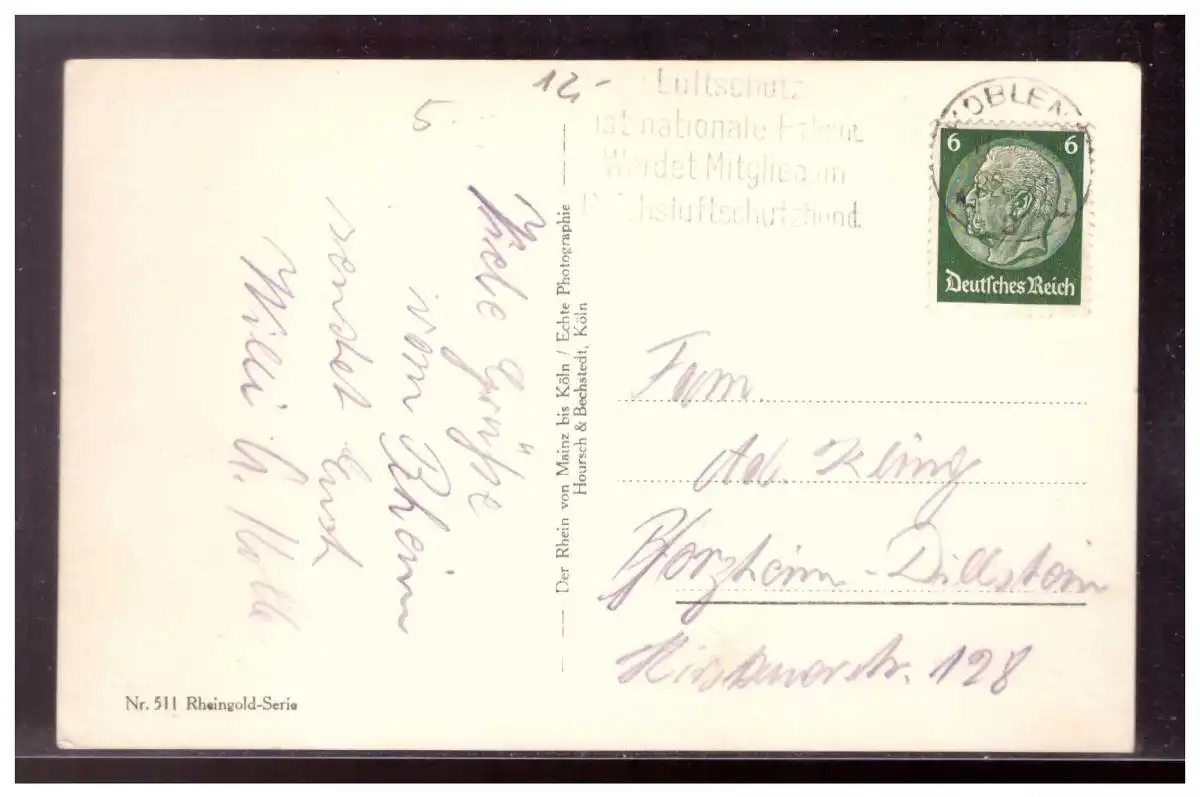 12,-
5
Luftschutz
ist nationale
Werdet Mitglied im
Reichsluftschutzbund
KOBLENZ
6 6
Deutsches Reich
Liebe Grüße
vom Rhein
sendet Euch
Willi u.
Der Rhein von Mainz bis Köln / Echte Photographie
Hoursch & Bechstedt, Köln
Fam.
Ad. Kling
Pforzheim-Dillstein
128
Nr. 511 Rheingold-Serie